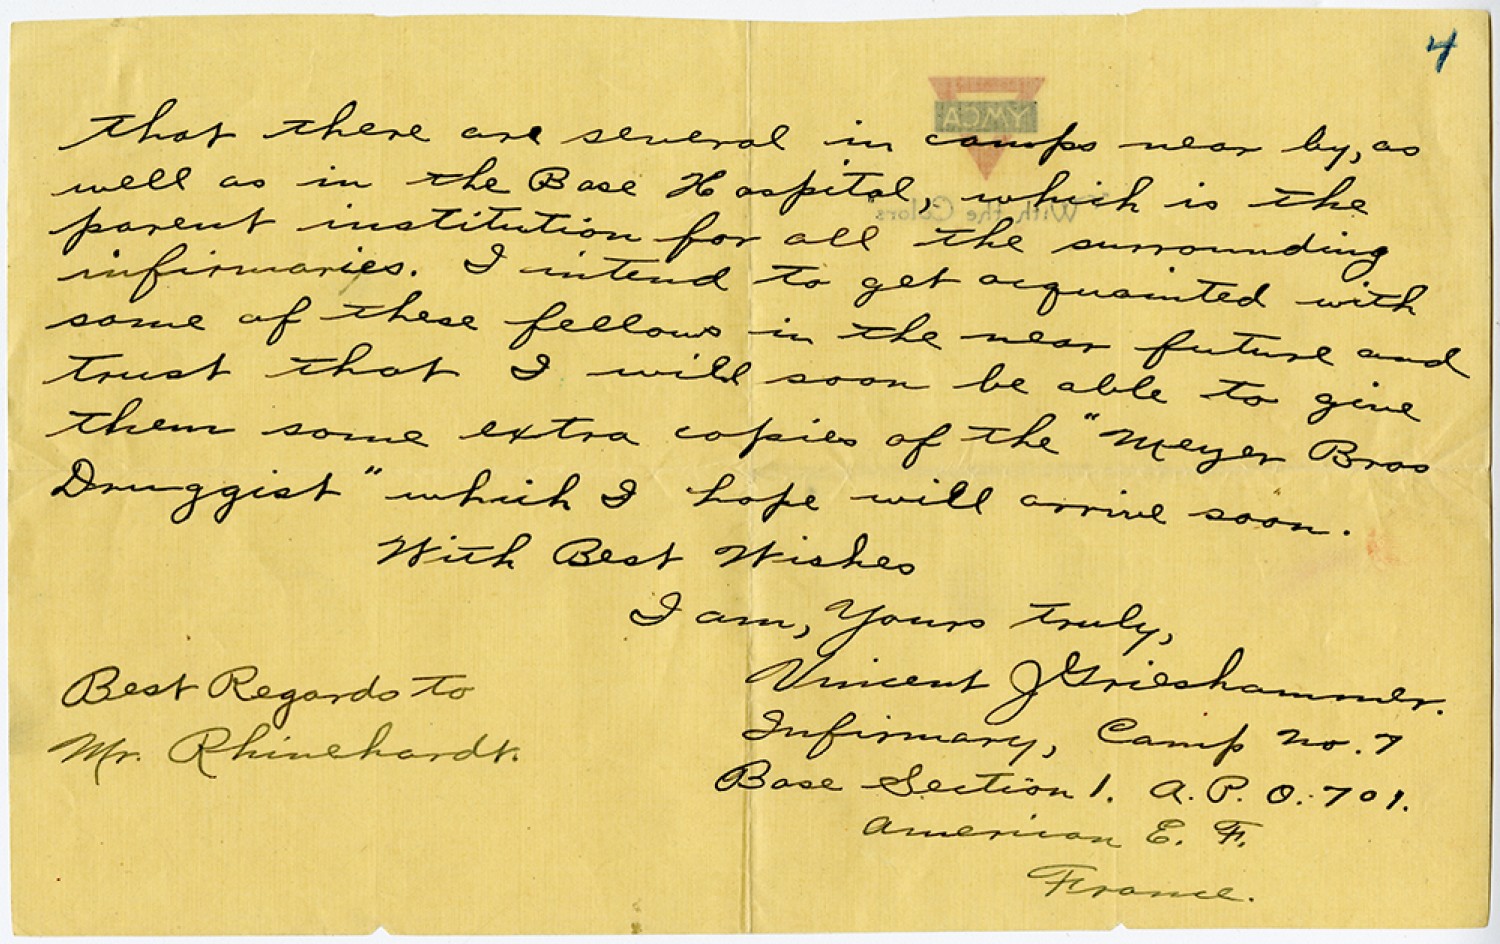 4
that there are several in camps near by, as
well as in the Base Hospital, which is the
parent institution for all the surrounding
infirmaries. I intend to get acquainted with
some of these fellows in the near future and
trust that I will soon be able to give
them some extra copies of the "Meyer Bros
Druggist" which I hope will arrive soon.
With Best Wishes
I am, Yours truly,
Vincent J Grieshammer.
Infirmary, Camp No. 7
Base Section 1. A. P. O. 701.
American E. F.
France.
Best Regards to
Mr. Rhinehardt.
YMCA
"With the Colors"